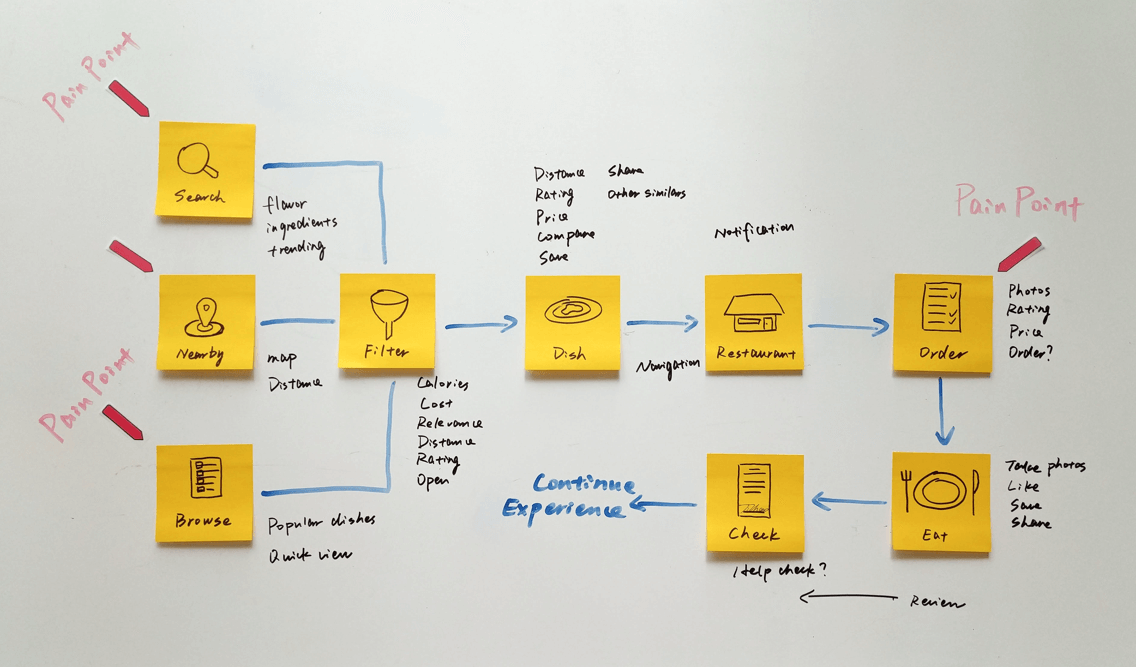 Pain Point
Search
flavor
ingredients
trending
Nearby
map
Distance
Pain Point
Browse
Popular dishes
Quick view
Filter
Calories
Cost
Relevance
Distance
Rating
Open
Distance Share
Rating Other similars
Price
Compare
Save
Dish
Navigation
Notification
Restaurant
Pain Point
Order
Photos
Rating
Price
Order?
Eat
Take photos
Like
Save
Share
Check
Help check?
Review
Continue
Experience